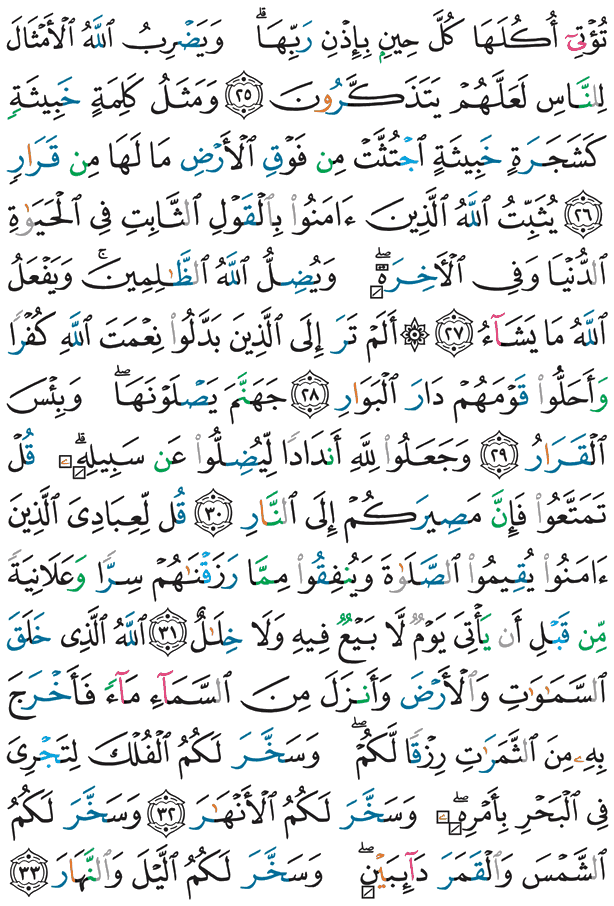 تُؤْتِىٓ أُكُلَهَا كُلَّ حِينٍۭ بِإِذْنِ رَبِّهَا ۗ وَيَضْرِبُ ٱللَّهُ ٱلْأَمْثَالَ
لِلنَّاسِ لَعَلَّهُمْ يَتَذَكَّرُونَ ٢٥ وَمَثَلُ كَلِمَةٍ خَبِيثَةٍۢ
كَشَجَرَةٍ خَبِيثَةٍ ٱجْتُثَّتْ مِن فَوْقِ ٱلْأَرْضِ مَا لَهَا مِن قَرَارٍۢ
٢٦ يُثَبِّتُ ٱللَّهُ ٱلَّذِينَ ءَامَنُوا۟ بِٱلْقَوْلِ ٱلثَّابِتِ فِى ٱلْحَيَوٰةِ
ٱلدُّنْيَا وَفِى ٱلْـَٔاخِرَةِ ۖ وَيُضِلُّ ٱللَّهُ ٱلظَّـٰلِمِينَ ۚ وَيَفْعَلُ
ٱللَّهُ مَا يَشَآءُ ٢٧ ۞ أَلَمْ تَرَ إِلَى ٱلَّذِينَ بَدَّلُوا۟ نِعْمَتَ ٱللَّهِ كُفْرًۭا
وَأَحَلُّوا۟ قَوْمَهُمْ دَارَ ٱلْبَوَارِ ٢٨ جَهَنَّمَ يَصْلَوْنَهَا ۖ وَبِئْسَ
ٱلْقَرَارُ ٢٩ وَجَعَلُوا۟ لِلَّهِ أَندَادًۭا لِّيُضِلُّوا۟ عَن سَبِيلِهِۦ ۗ قُلْ
تَمَتَّعُوا۟ فَإِنَّ مَصِيرَكُمْ إِلَى ٱلنَّارِ ٣٠ قُل لِّعِبَادِىَ ٱلَّذِينَ
ءَامَنُوا۟ يُقِيمُوا۟ ٱلصَّلَوٰةَ وَيُنفِقُوا۟ مِمَّا رَزَقْنَـٰهُمْ سِرًّۭا وَعَلَانِيَةًۭ
مِّن قَبْلِ أَن يَأْتِىَ يَوْمٌۭ لَّا بَيْعٌۭ فِيهِ وَلَا خِلَـٰلٌ ٣١ ٱللَّهُ ٱلَّذِى خَلَقَ
ٱلسَّمَـٰوَٰتِ وَٱلْأَرْضَ وَأَنزَلَ مِنَ ٱلسَّمَآءِ مَآءًۭ فَأَخْرَجَ
بِهِۦ مِنَ ٱلثَّمَرَٰتِ رِزْقًۭا لَّكُمْ ۖ وَسَخَّرَ لَكُمُ ٱلْفُلْكَ لِتَجْرِىَ
فِى ٱلْبَحْرِ بِأَمْرِهِۦ ۖ وَسَخَّرَ لَكُمُ ٱلْأَنْهَـٰرَ ٣٢ وَسَخَّرَ لَكُمُ
ٱلشَّمْسَ وَٱلْقَمَرَ دَآئِبَيْنِ ۖ وَسَخَّرَ لَكُمُ ٱلَّيْلَ وَٱلنَّهَارَ ٣٣